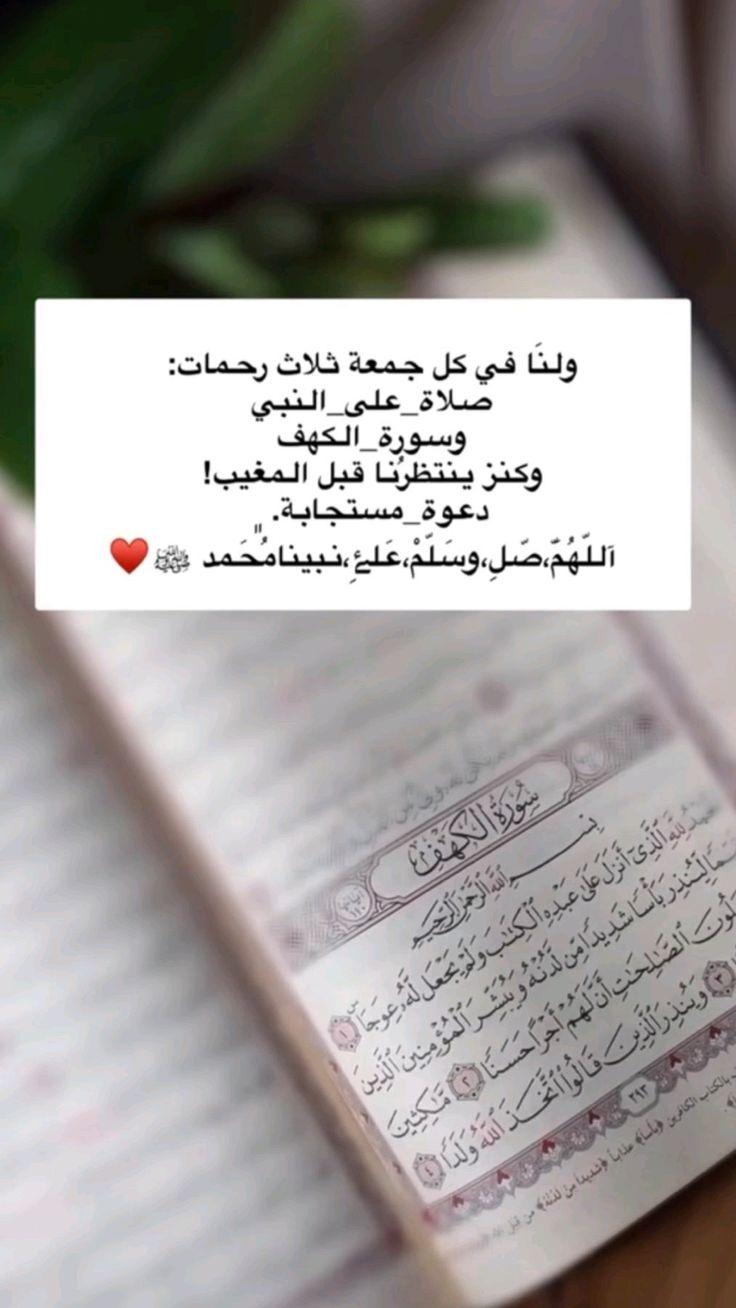 ولنَا في كل جمعة ثلاث رحمات:
صلاة_على_النبي
وسورة_الكهف
وكنز ينتظرُنا قبل المغيب!
دعوة_مستجابة.
اَللّهُمَّ،صّلِ،وسَلّمْ،عَلۓِ،نبينامُحَمد ﷺ ♥️
سُورَةُ الكَهْفِ
بِسْمِ اللَّهِ الرَّحْمَٰنِ الرَّحِيمِ
لِلَّهِ الَّذِي أَنزَلَ عَلَىٰ عَبْدِهِ الْكِتَٰبَ وَلَمْ يَجْعَل لَّهُ عِوَجَا ١
لِّيُنذِرَ بَأْسًا شَدِيدًا مِّن لَّدُنْهُ وَيُبَشِّرَ الْمُؤْمِنِينَ الَّذِينَ
الصَّٰلِحَٰتِ أَنَّ لَهُمْ أَجْرًا حَسَنًا ٢ مَّٰكِثِينَ
٣ وَيُنذِرَ الَّذِينَ قَالُوا اتَّخَذَ اللَّهُ وَلَدًا ٤
٢٩٣